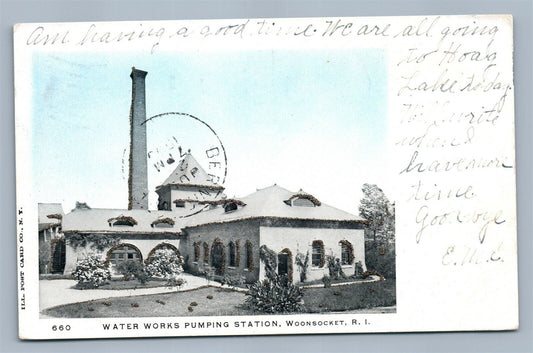 Am having a good time. We are all going
to Hoag
Lake today
Will write
when I
have more
time
Goodbye
E.M.L.
DER
ILL. POST CARD CO., N. Y.
660 WATER WORKS PUMPING STATION, WOONSOCKET, R. I.